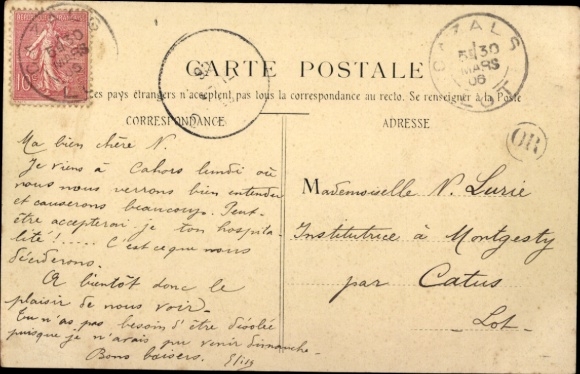 CARTE POSTALE
Les pays étrangers n'acceptent pas tous la correspondance au recto. Se renseigner à la Poste
CORRESPONDANCE
Ma bien chère N.
Je viens à Cahors lundi où
nous nous verrons bien entendu
et causerons beaucoup. Peut-
être accepterai je ton hospita-
lité!..... C'est ce que nous
déciderons.
A bientôt donc le
plaisir de nous voir.
Tu n'as pas besoin d'être désolée
puisque je n'avais pu venir dimanche.
Bons baisers.
ADRESSE
Mademoiselle N. Lurie
Institutrice à Montgesty
par Catus
Lot
CAZALS
5 30
MARS
06
LOT
OR
10